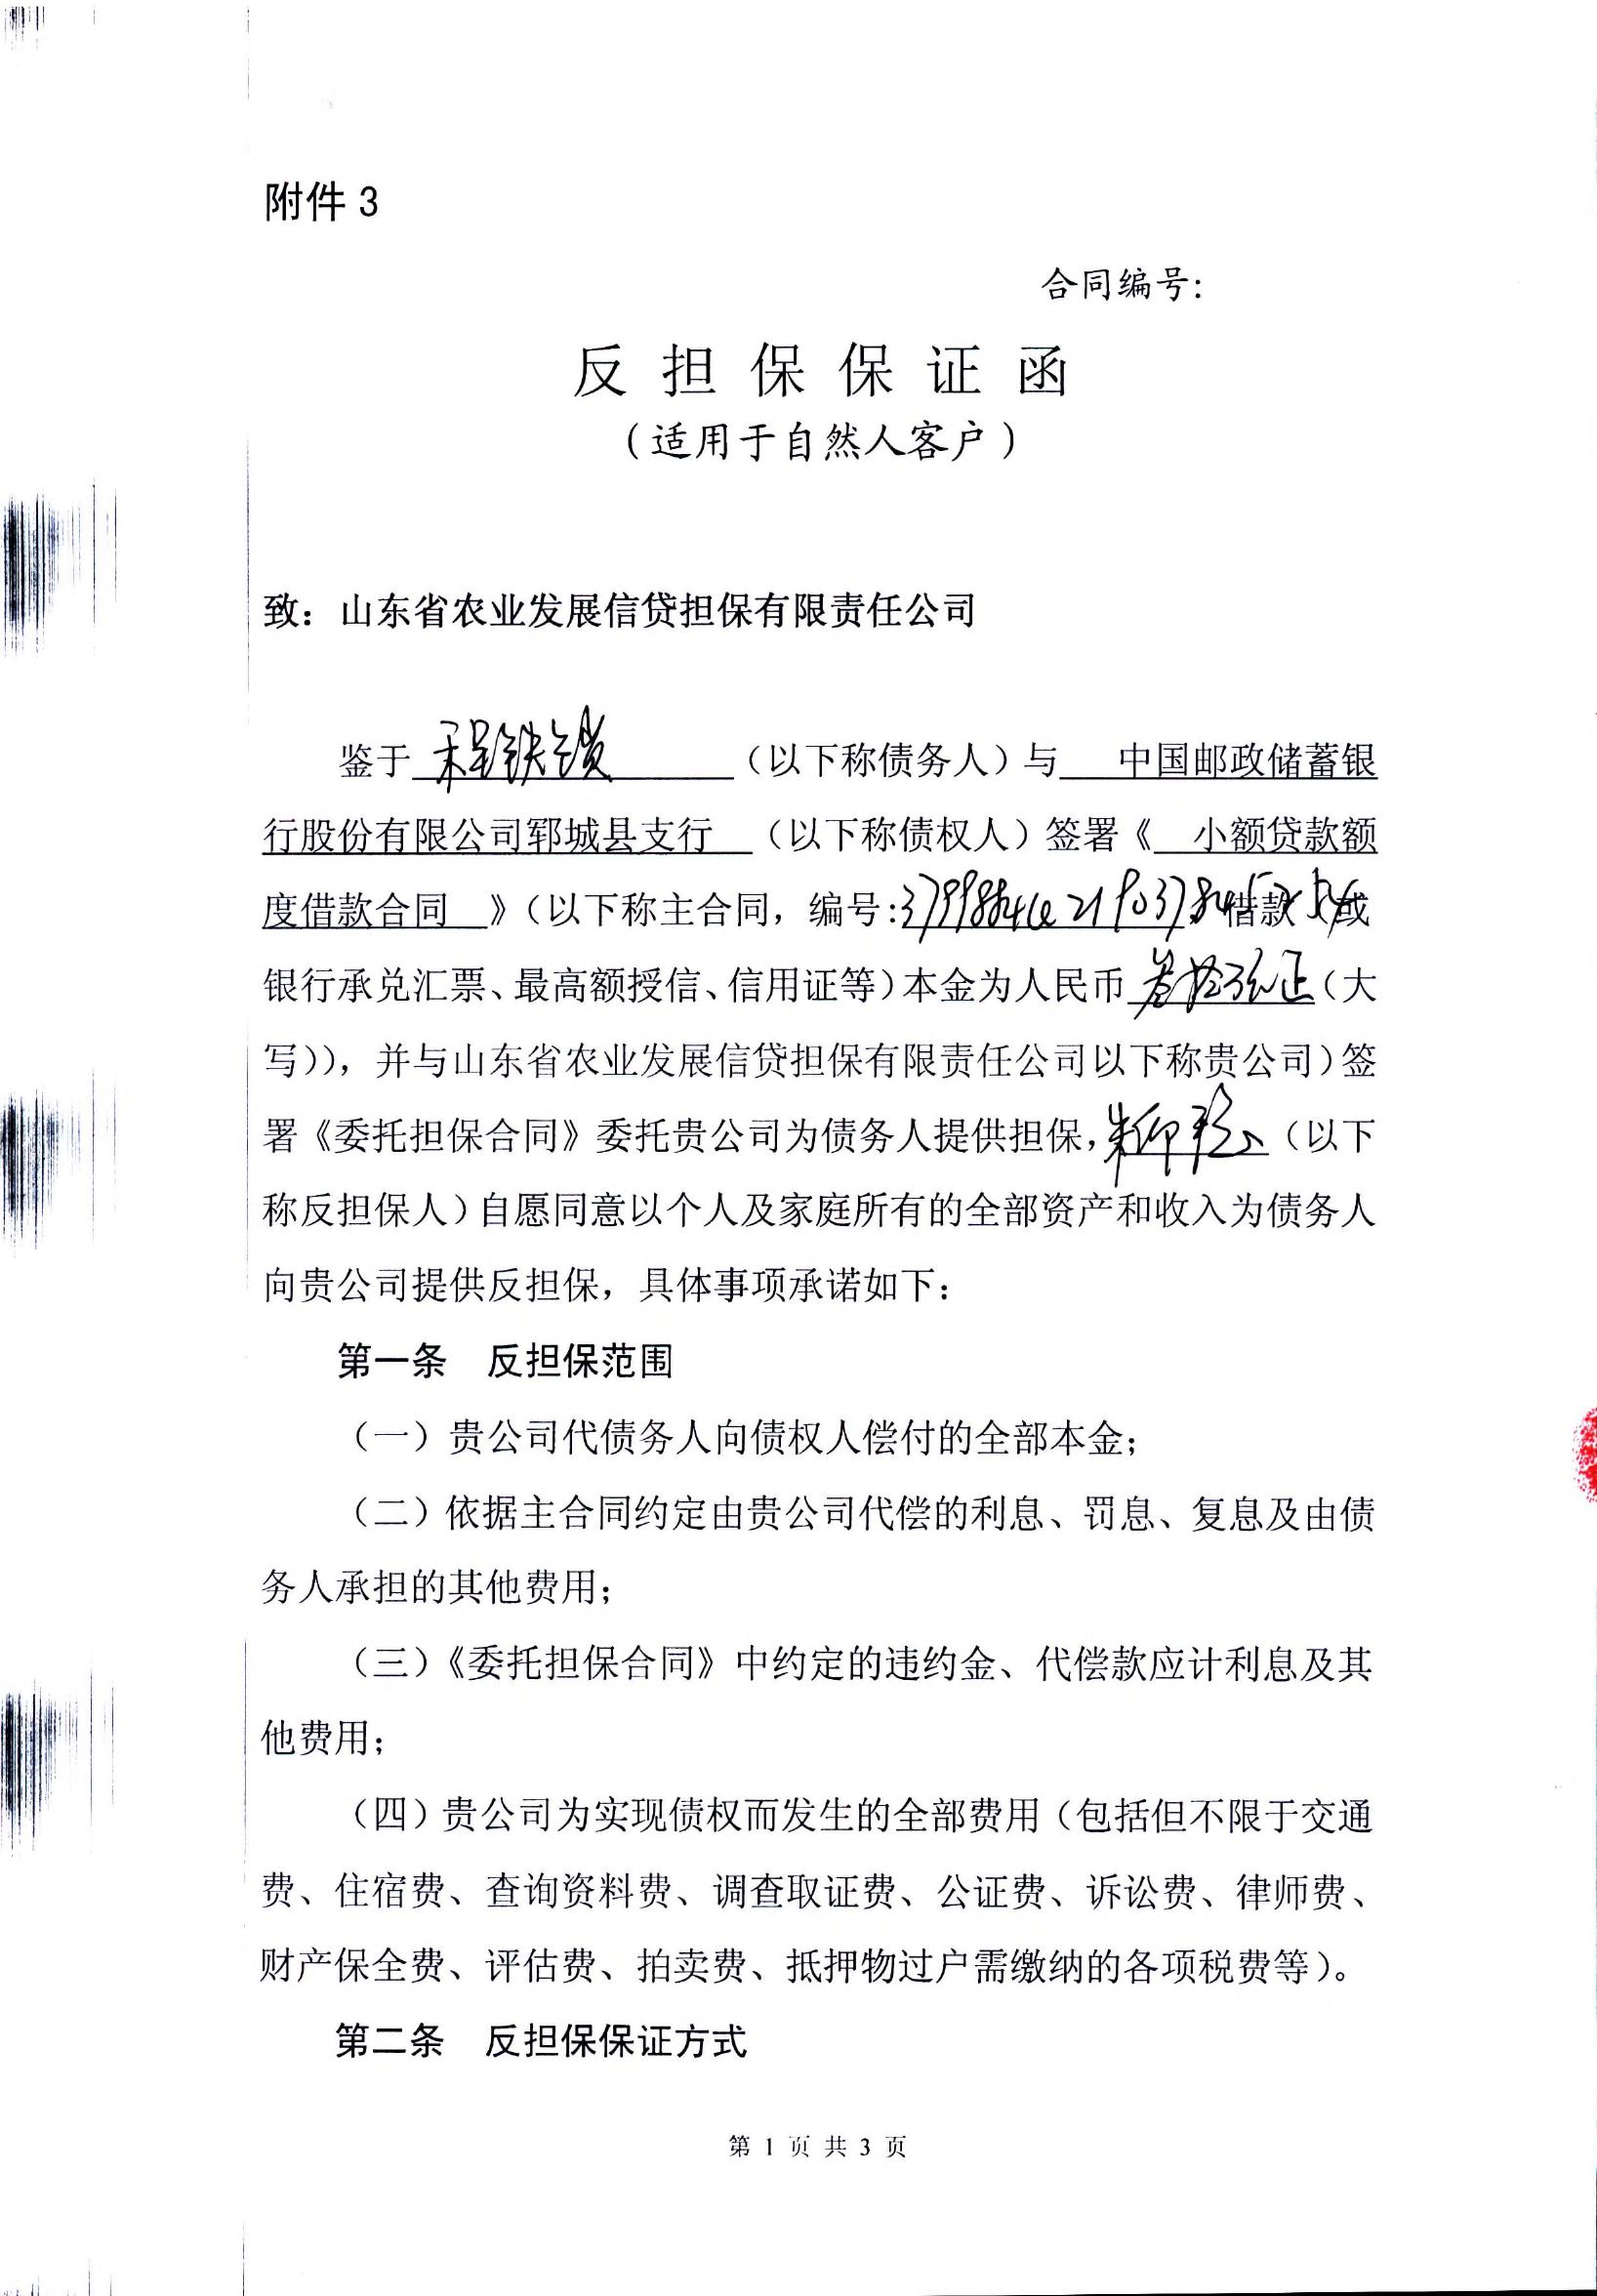 附件 3
合同编号:
反担保保证函
(适用于自然人客户)
致：山东省农业发展信贷担保有限责任公司
鉴于 程铁锁 （以下称债务人）与 中国邮政储蓄银
行股份有限公司郓城县支行 （以下称债权人）签署《 小额贷款额
度借款合同 》（以下称主合同，编号: 借款 或
银行承兑汇票、最高额授信、信用证等）本金为人民币 叁拾万元正（大
写)），并与山东省农业发展信贷担保有限责任公司以下称贵公司）签
署《委托担保合同》委托贵公司为债务人提供担保， （以下
称反担保人）自愿同意以个人及家庭所有的全部资产和收入为债务人
向贵公司提供反担保，具体事项承诺如下：
第一条 反担保范围
（一）贵公司代债务人向债权人偿付的全部本金；
（二）依据主合同约定由贵公司代偿的利息、罚息、复息及由债
务人承担的其他费用；
（三）《委托担保合同》中约定的违约金、代偿款应计利息及其
他费用；
（四）贵公司为实现债权而发生的全部费用（包括但不限于交通
费、住宿费、查询资料费、调查取证费、公证费、诉讼费、律师费、
财产保全费、评估费、拍卖费、抵押物过户需缴纳的各项税费等）。
第二条 反担保保证方式
第 1 页 共 3 页